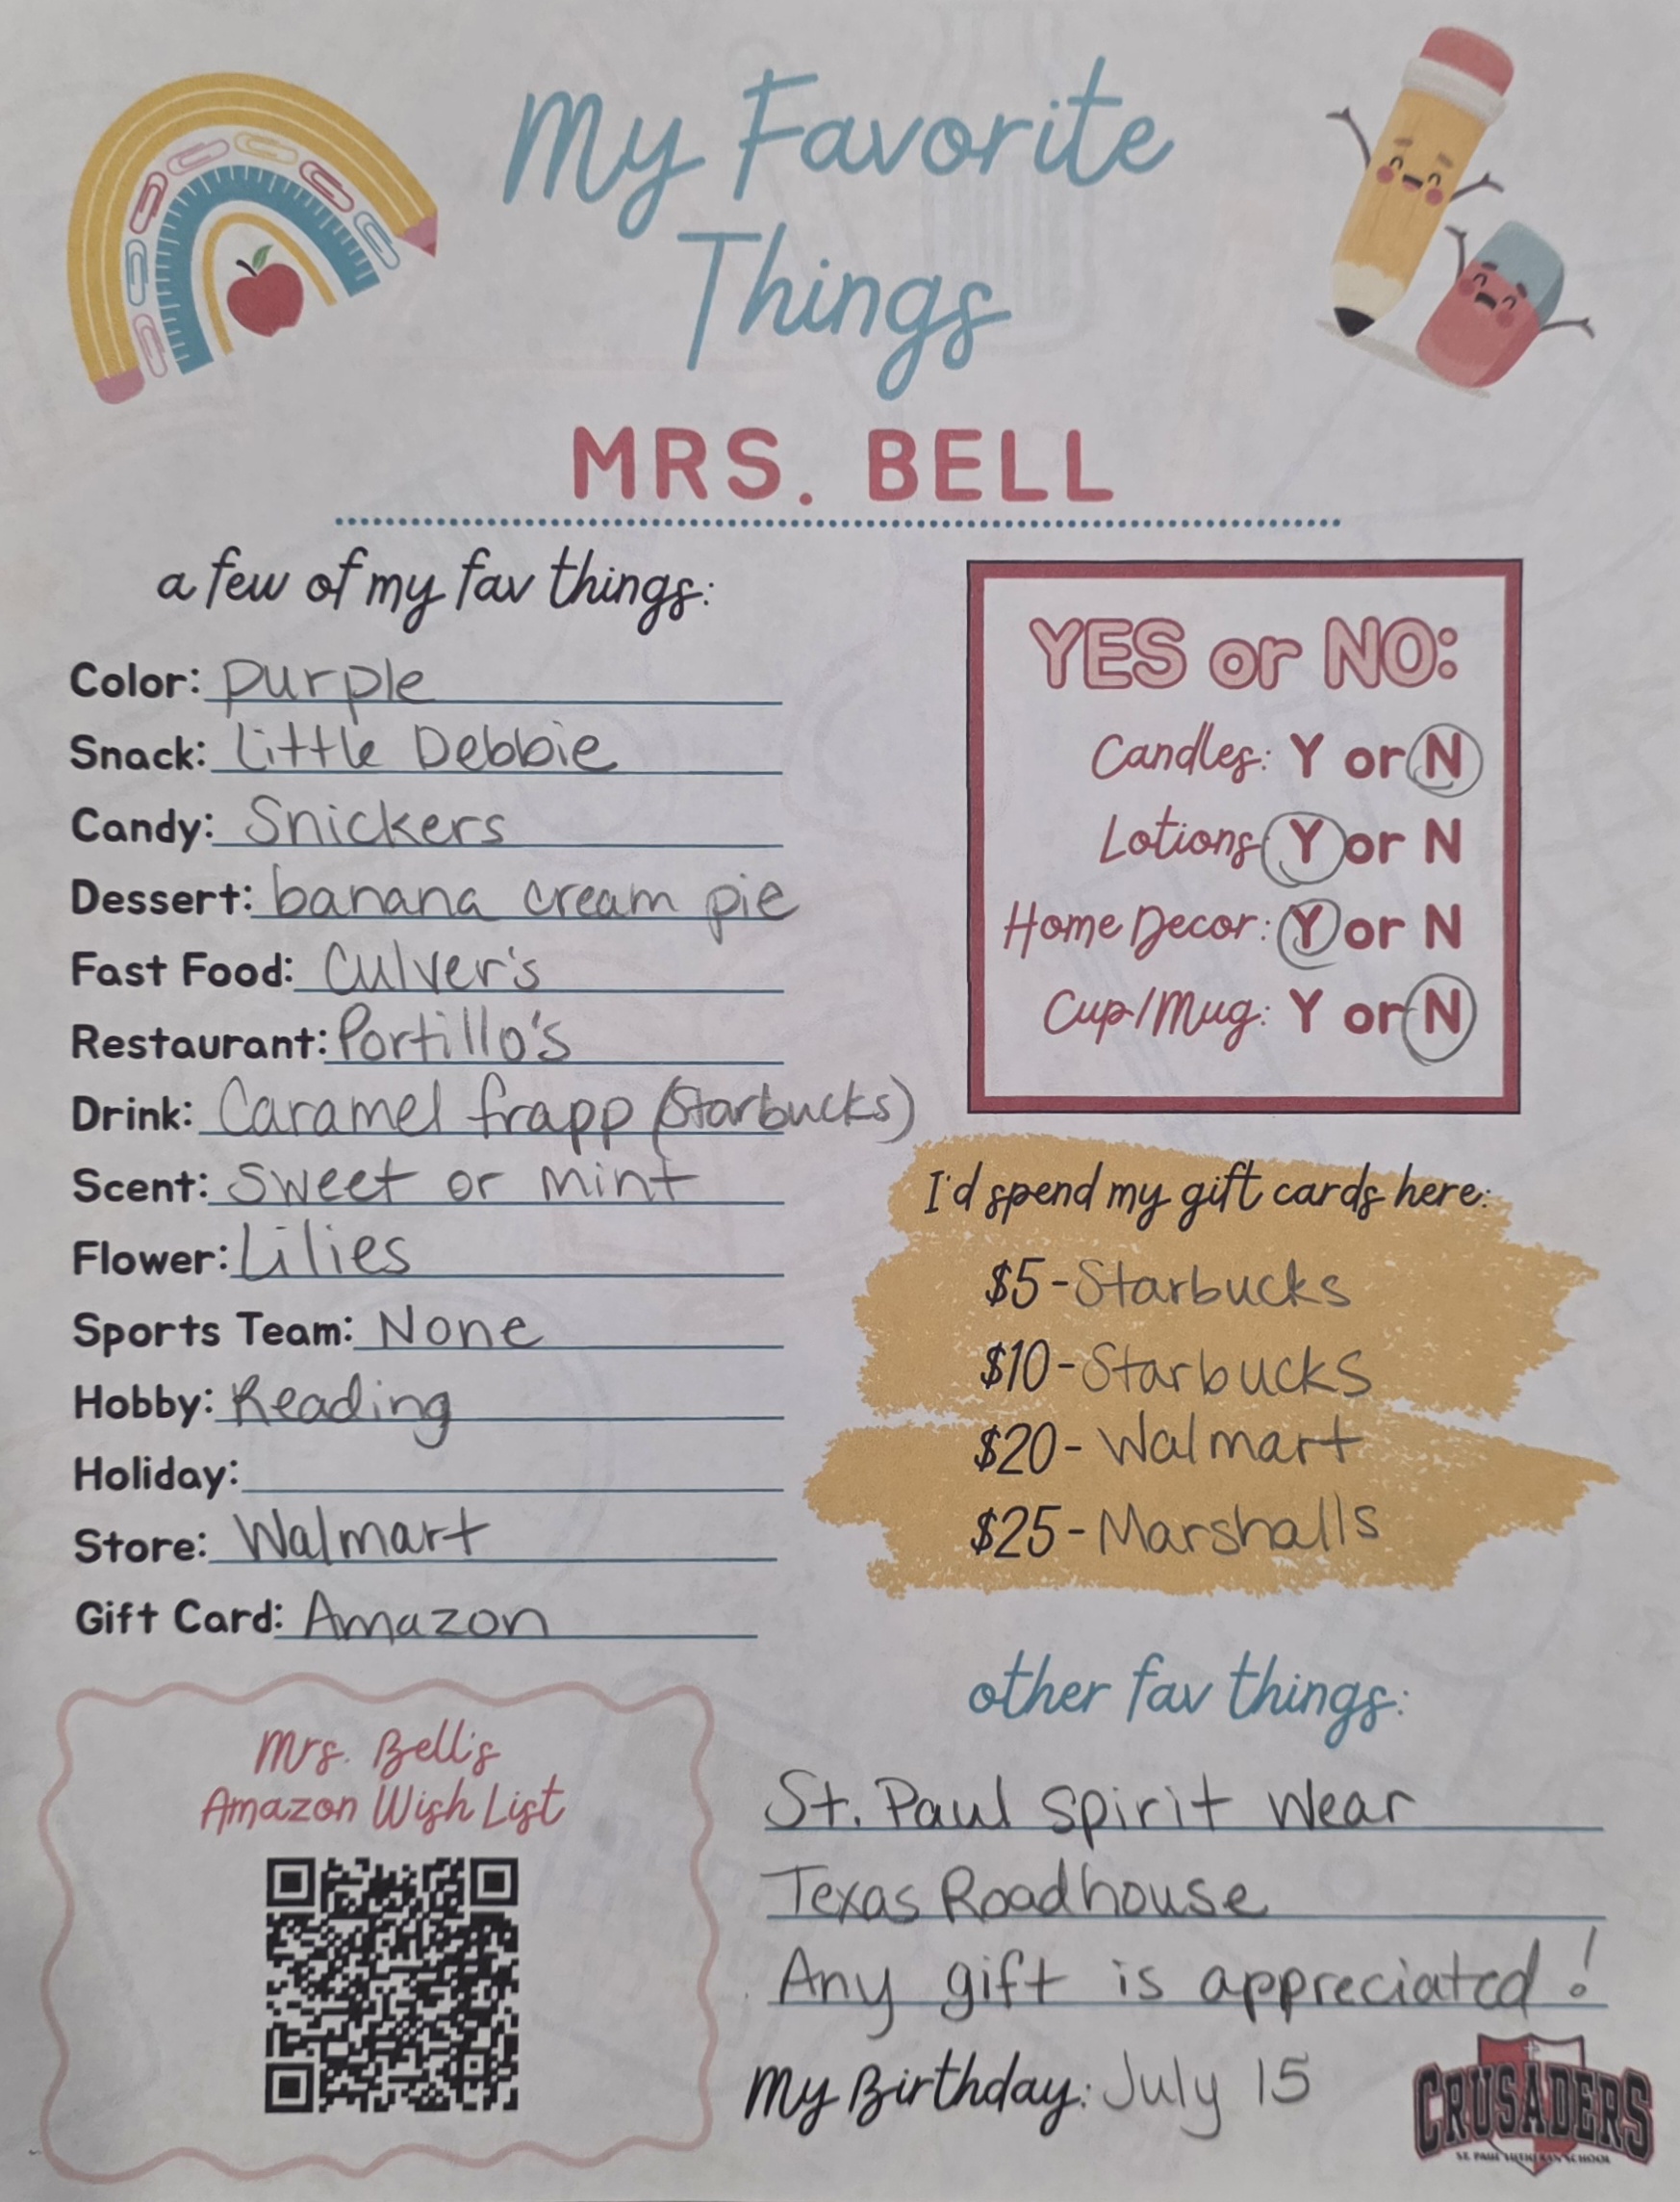 My Favorite
Things
MRS. BELL
a few of my fav things:
Color: purple
Snack: Little Debbie
Candy: Snickers
Dessert: banana cream pie
Fast Food: Culver's
Restaurant: Portillo's
Drink: Caramel frapp (Starbucks)
Scent: sweet or mint
Flower: Lilies
Sports Team: None
Hobby: Reading
Holiday:
Store: Walmart
Gift Card: Amazon
YES or NO:
Candles: Y or N
Lotions: Y or N
Home Decor: Y or N
Cup/Mug: Y or N
I'd spend my gift cards here:
$5-Starbucks
$10-Starbucks
$20- Walmart
$25-Marshalls
Mrs. Bell's
Amazon Wish List
other fav things:
St. Paul Spirit Wear
Texas Roadhouse
Any gift is appreciated!
My Birthday: July 15
CRUSADERS
ST. PAUL LUTHERAN SCHOOL